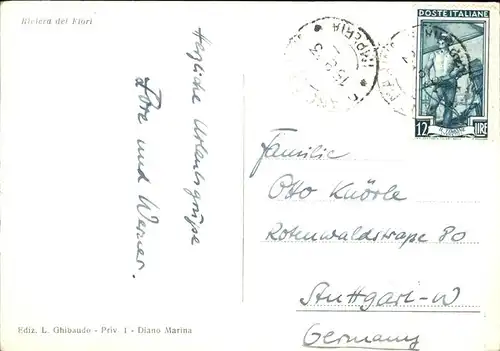 Riviera dei Fiori
Herzliche Urlaubsgrüße
Lore und Werner.
POSTE ITALIANE
IL TIMONE
12 LIRE
IMPERIA
Familie
Otto Knörle
Rotenwaldstraße 80
Stuttgart-W
Germany
Ediz. L. Ghibaudo - Priv. 1 - Diano Marina